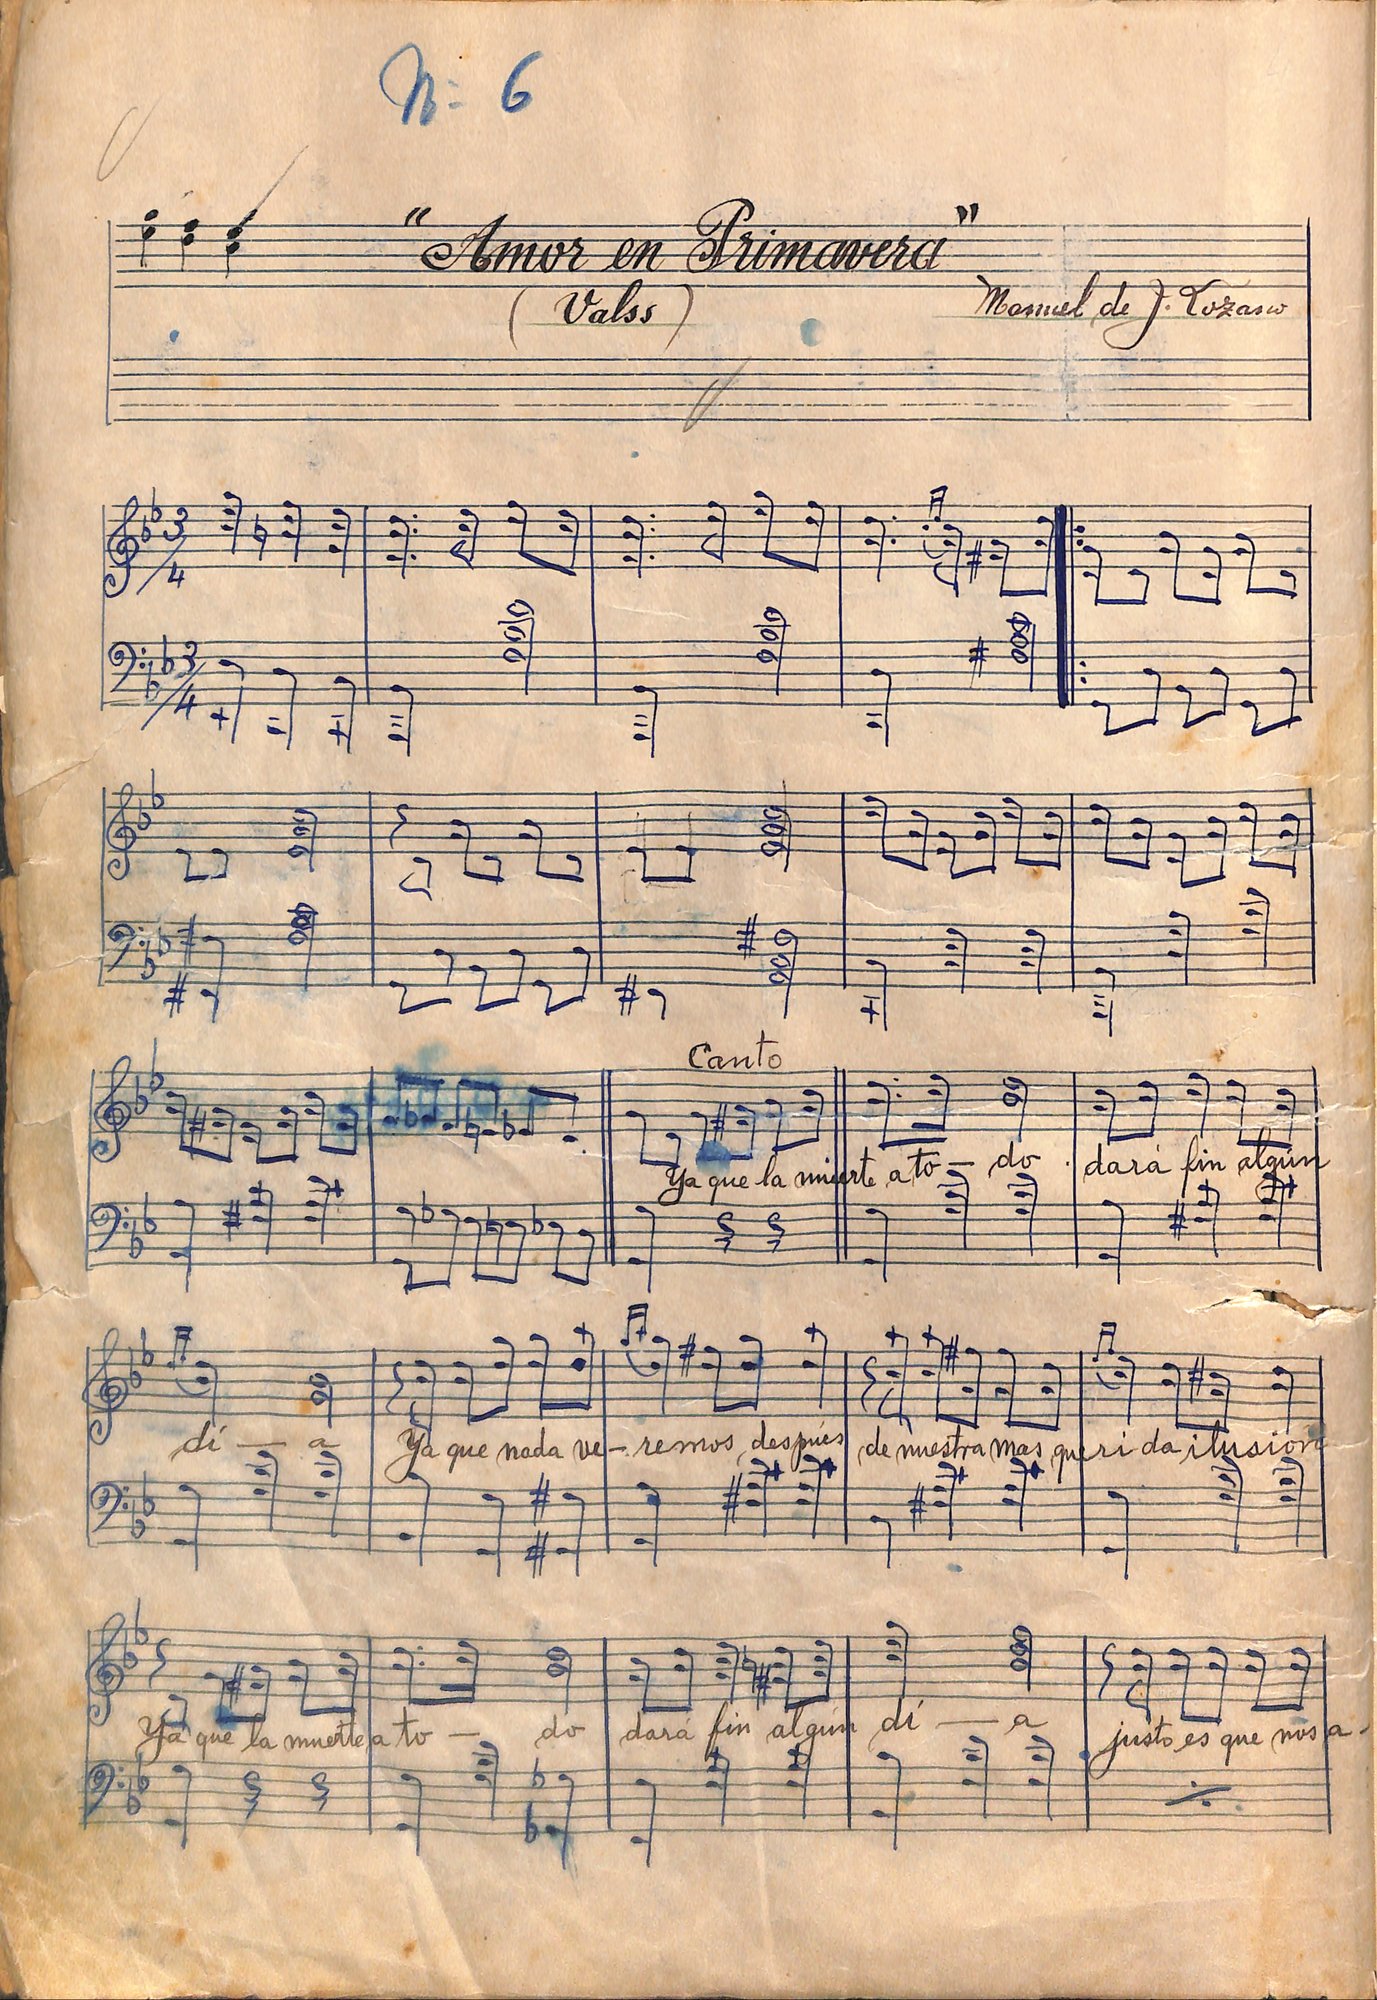 N= 6
"Amor en Primavera"
(Valss)
Manuel de J. Lozano
3/4
3/4
Canto
Ya que la muerte a to — do dará fin algún
di — a Ya que nada ve — remos después de nuestra mas queri da ilusion
Ya que la muerte a to — do dará fin algún di — a justo es que nos a-